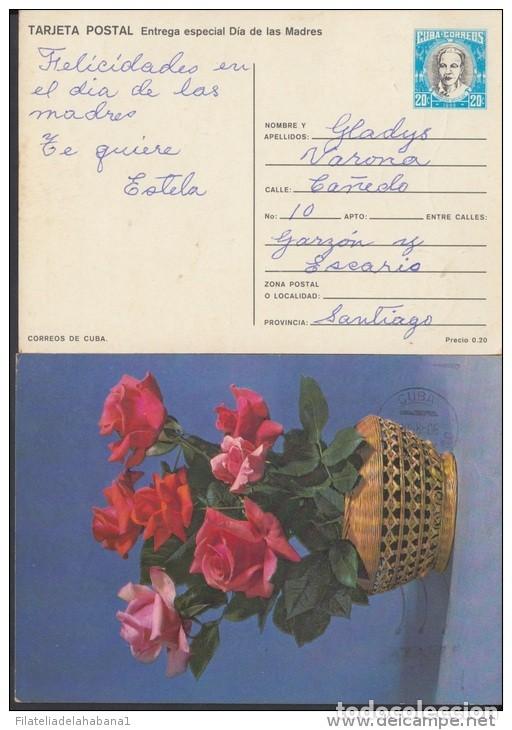 TARJETA POSTAL Entrega especial Día de las Madres
CUBA·CORREOS
20¢ 20¢
Felicidades en
el dia de las
madres
Te quiere
Estela
NOMBRE Y
APELLIDOS: Gladys
Varona
CALLE: Cañedo
No: 10 APTO: ENTRE CALLES:
Garzón y
Escario
ZONA POSTAL
O LOCALIDAD:
PROVINCIA: Santiago
CORREOS DE CUBA. Precio 0.20
CUBA
FilateliadelaHabana1
todocoleccion.net